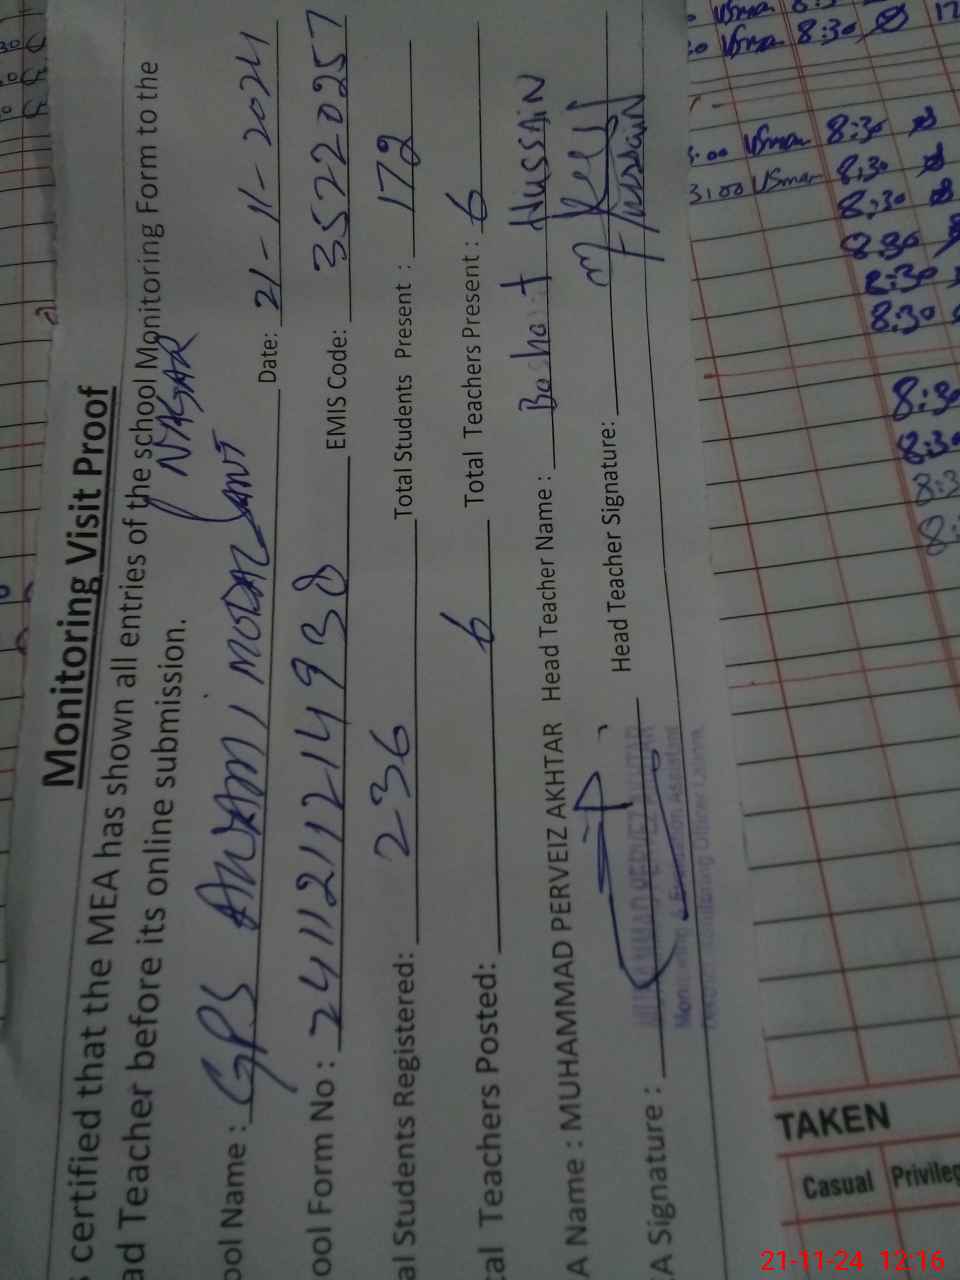 Monitoring Visit Proof
certified that the MEA has shown all entries of the school Monitoring Form to the
ad Teacher before its online submission.
NAGAR
ool Name : GPS AWAMI MODAL Date: 21-11-2024
ool Form No : 241121121214938 EMIS Code: 35220257
al Students Registered: 236 Total Students Present : 172
tal Teachers Posted: 6 Total Teachers Present : 6
A Name : MUHAMMAD PERVEIZ AKHTAR Head Teacher Name : Bashart Hussain
A Signature : Head Teacher Signature: Hussain
MUHAMMAD PERVEIZ AKHTAR
Monitoring & Evaluation Assistant
Usman 8:30
Usman 8:30
3:00 Usman 8:30
3:00 Usman 8:30
8:30
8:30
8:30
8:30
8:30
8:30
TAKEN
Casual Privileg
21-11-24 12:16